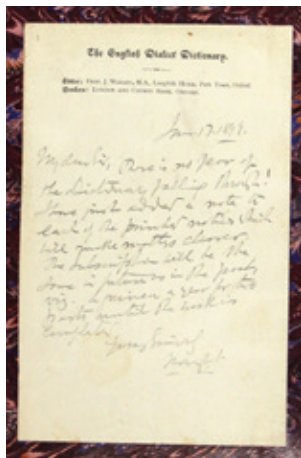 The English Dialect Dictionary.
Editor: Prof. J. Wright, M.A., Langdale House, Park Town, Oxford
Bankers: London and County Bank, Oxford.
1899.
My dear Sir, There is no fear of
the dictionary falling through!
I have just added a note to
each of the printed notices which
will make matters clearer.
The subscription will be the
same in future as in the past,
viz. a guinea a year for two
Parts until the work is
complete.
Yours sincerely